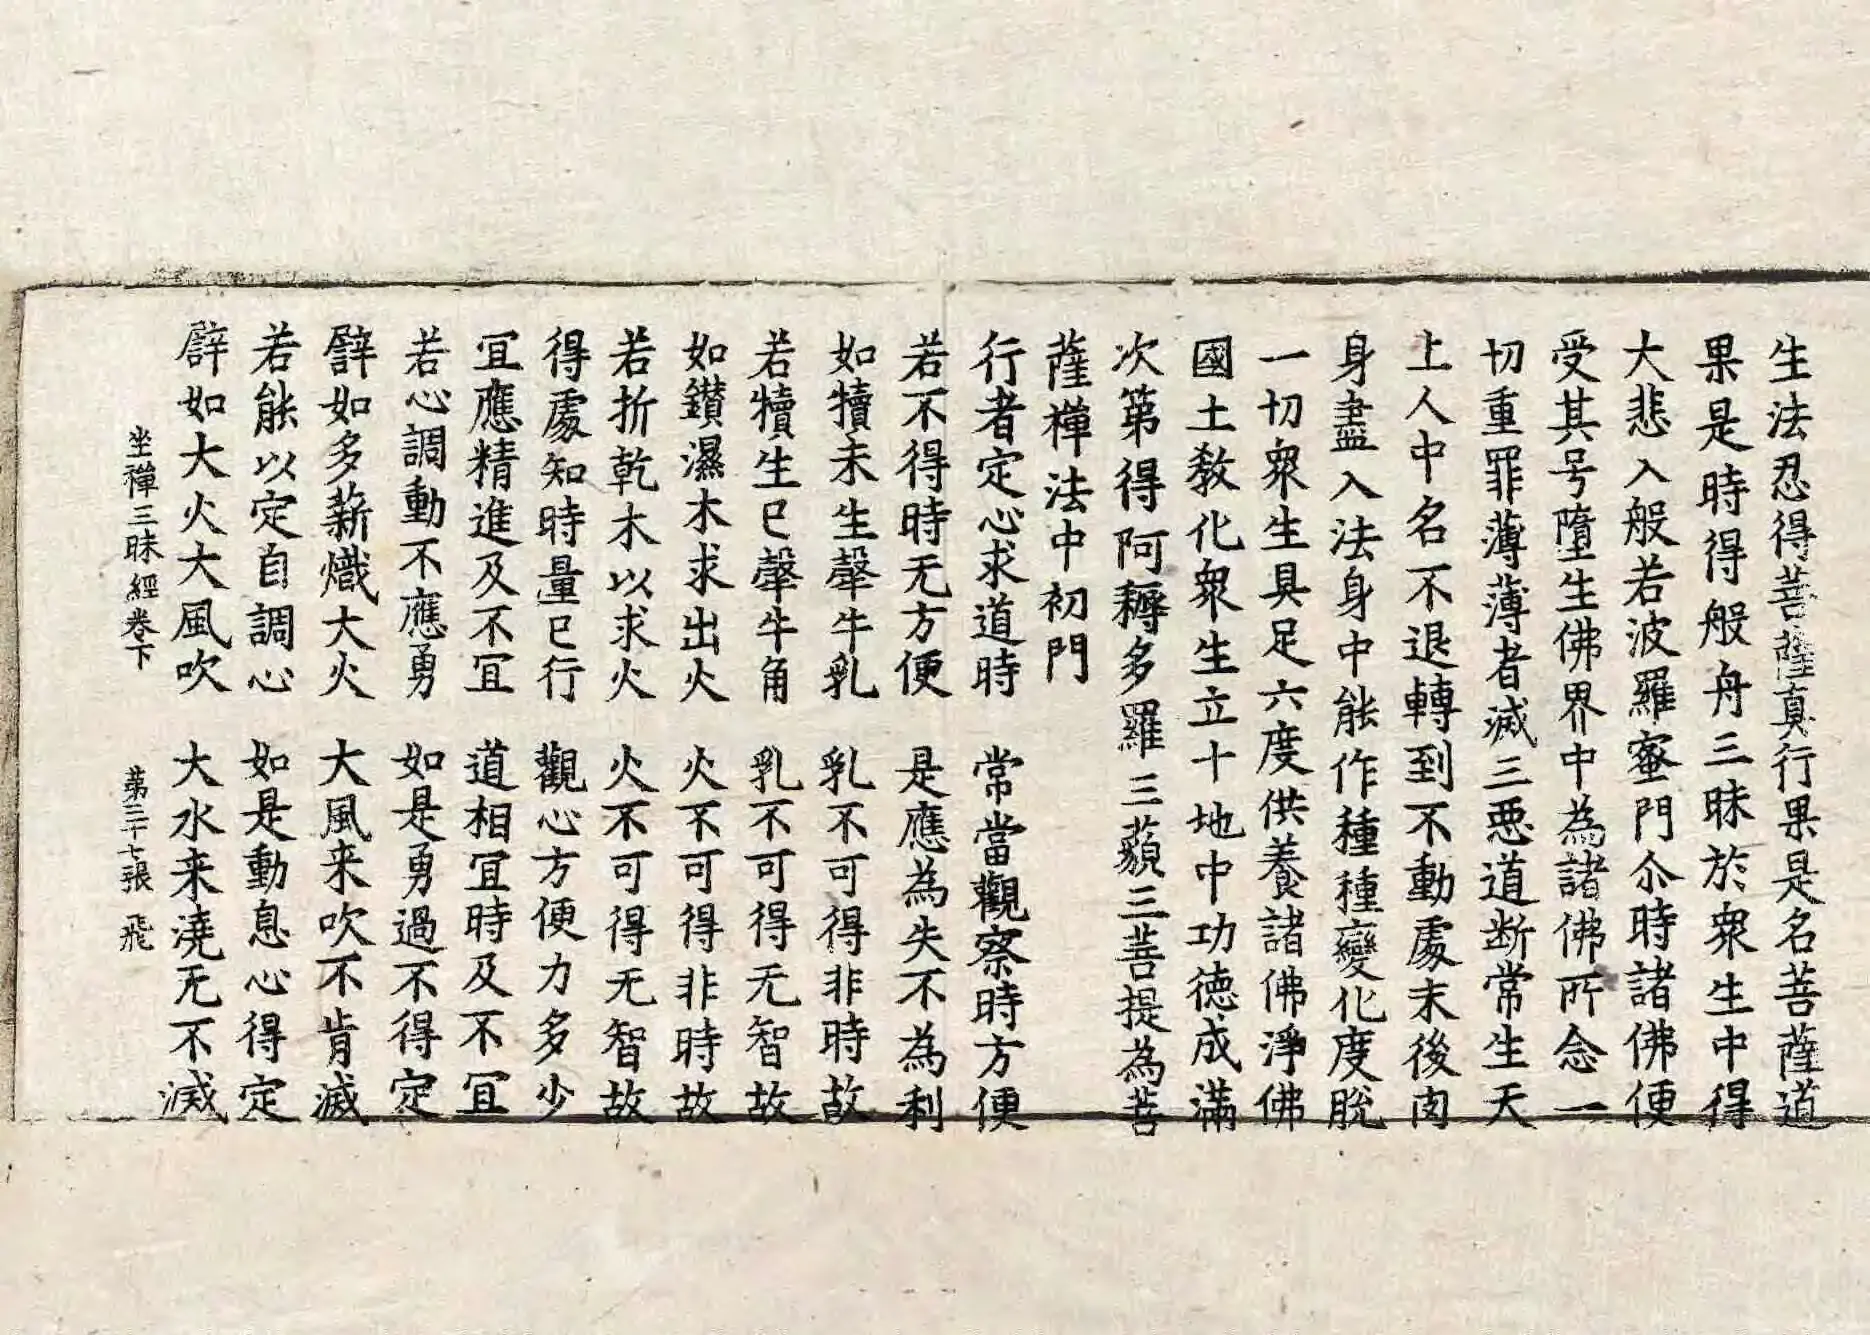 生法忍得菩薩真行果是名菩薩道
果是時得般舟三昧於衆生中得
大悲入般若波羅蜜門尒時諸佛便
受其号墮生佛界中為諸佛所念一
切重罪薄薄者滅三惡道断常生天
上人中名不退轉到不動處末後肉
身盡入法身中能作種種變化度脫
一切衆生具足六度供養諸佛淨佛
國土教化衆生立十地中功德成滿
次第得阿耨多羅三藐三菩提為菩
薩禪法中初門
行者定心求道時 常當觀察時方便
若不得時无方便 是應為失不為利
如犢未生𤛗牛乳 乳不可得非時故
若犢生已𤛗牛角 乳不可得无智故
如鑚濕木求出火 火不可得非時故
若折乾木以求火 火不可得无智故
得處知時量已行 觀心方便力多少
宜應精進及不宜 道相宜時及不宜
若心調動不應勇 如是勇過不得定
譬如多薪熾大火 大風来吹不肯滅
若能以定自調心 如是動息心得定
譬如大火大風吹 大水来澆无不滅
坐禪三昧經卷下 第三十七張 飛